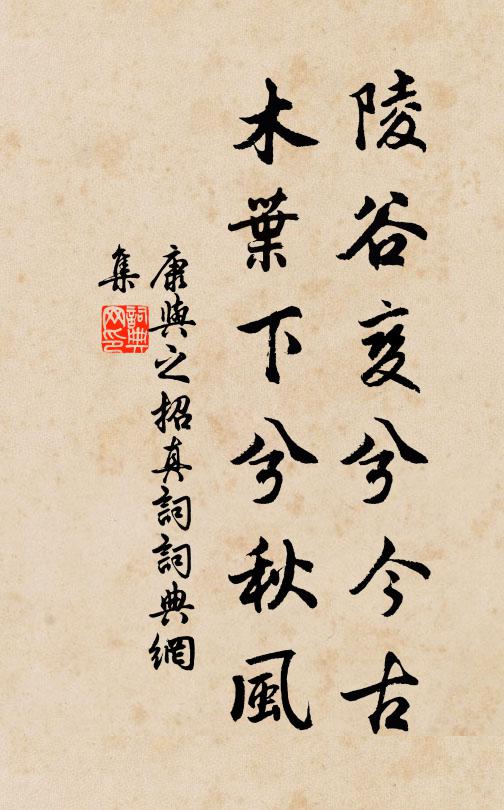 陵谷变兮今古
木葉下兮秋風
康與之招真詞詞典網
集
詞典
网印